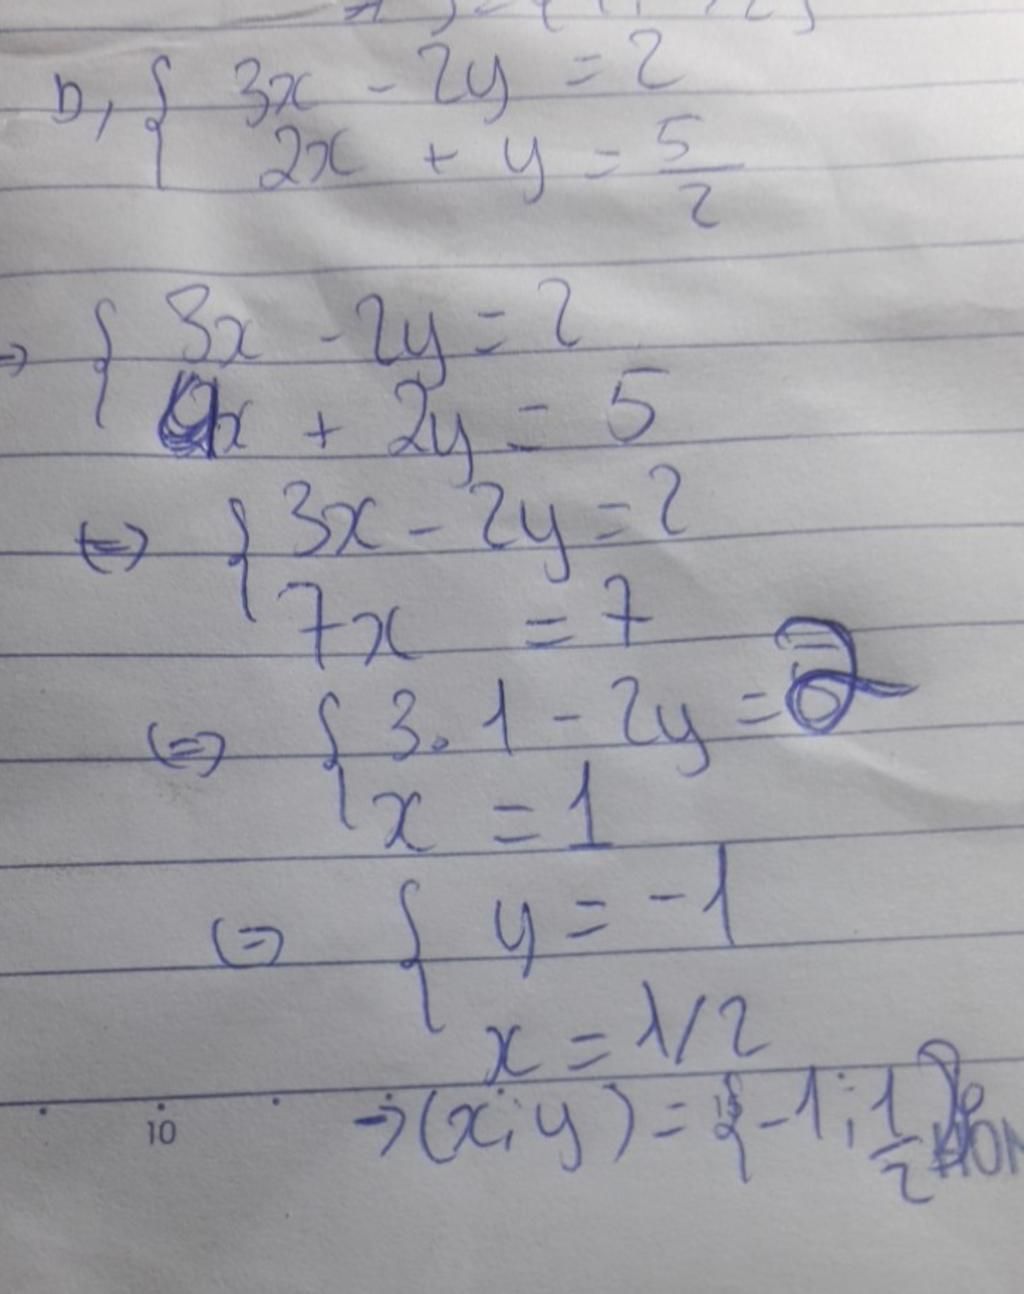 b, { 3x - 2y = 2
2x + y = 5/2
=> { 3x - 2y = 2
4x + 2y = 5
<=> { 3x - 2y = 2
7x = 7
<=> { 3.1 - 2y = 2
x = 1
<=> { y = -1
x = 1/2
→ (x; y) = {-1; 1/2}
10